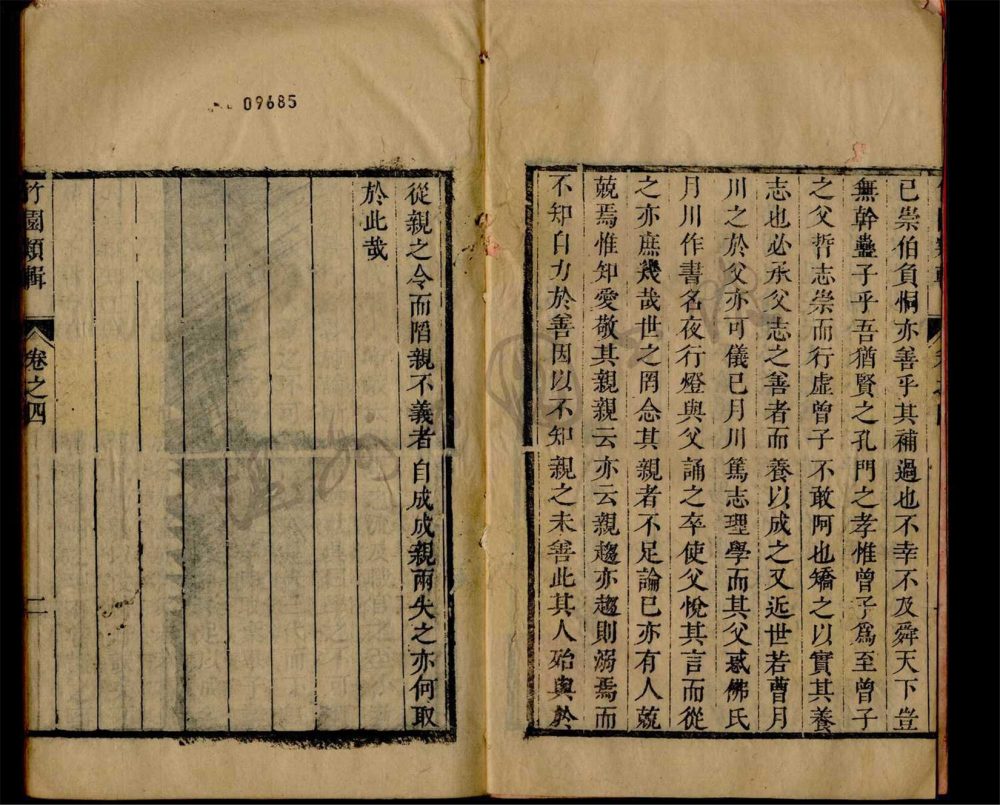 已祟伯負恫亦善乎其補過也不幸不及舜天下豈
無幹蠱子乎吾猶賢之孔門之孝惟曾子爲至曾子
之父哲志崇而行虛曾子不敢阿也矯之以實其養
志也必承父志之善者而養以成之又近世若曹月
川之於父亦可儀已月川篤志理學而其父惑佛氏
月川作書名夜行燈與父誦之卒使父悅其言而從
之亦庶幾哉世之罔念其親者不足論已亦有人兢
兢焉惟知愛敬其親親云亦云親趨亦趨則溺焉而
不知自力於善因以不知親之未善此其人殆與於
從親之令而陷親不義者自成成親兩失之亦何取
於此哉
竹園類輯
卷之四
二
09685